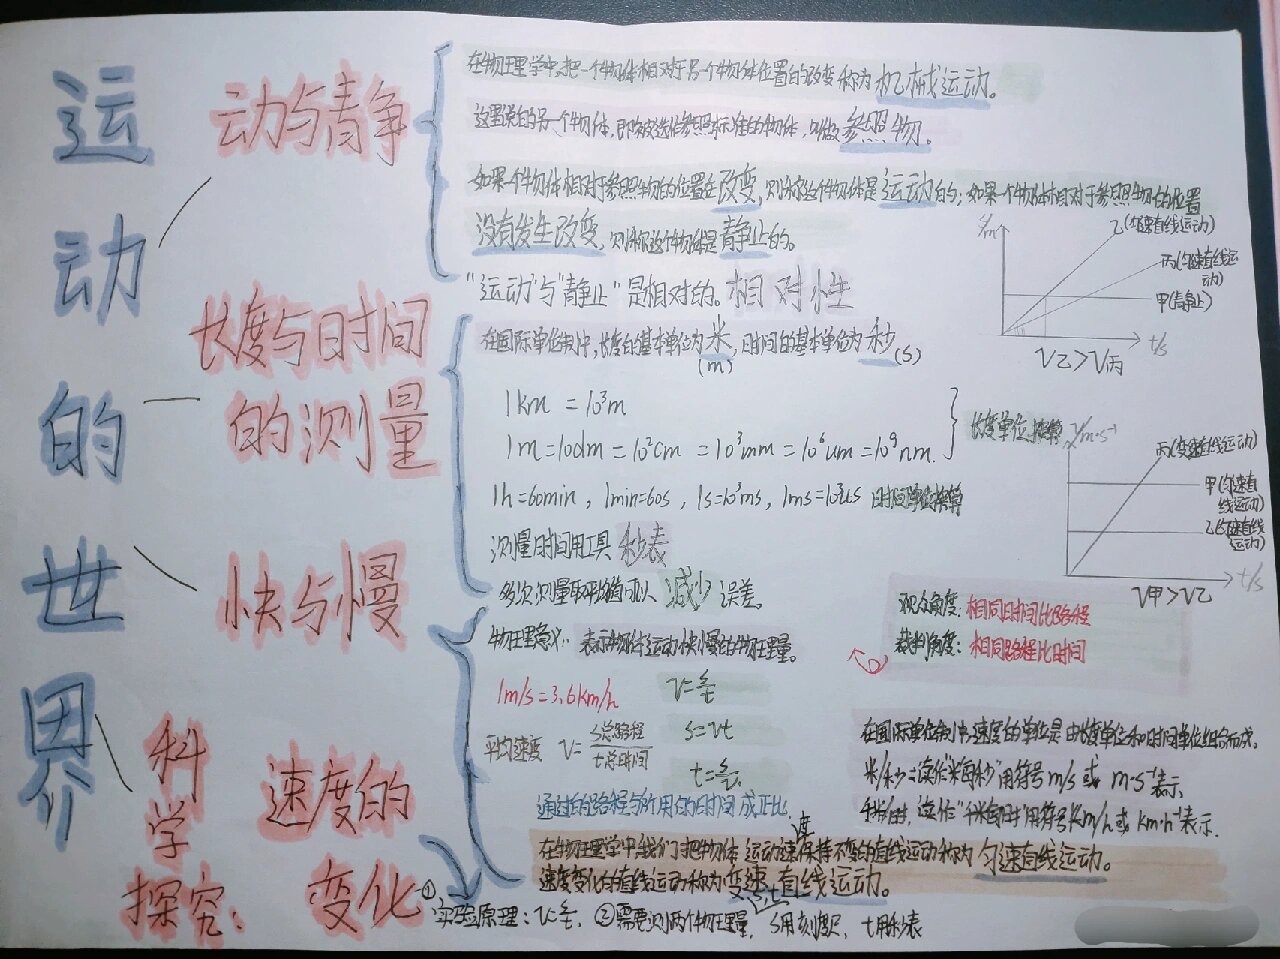 运动的世界
动与青争
在物理学中,把一个物体相对于另一个物体位置的改变称为机械运动。
这里说的另一个物体,即被选作参照标准的物体,叫做参照物。
如果一个物体相对于参照物的位置在改变,则称这个物体是运动的;如果一个物体相对于参照物的位置
没有发生改变,则称这个物体是静止的。
"运动"与"静止"是相对的。相对性
s/m
乙(匀速直线运动)
丙(匀速直线运动)
甲(静止)
t/s
V乙>V丙
长度与时间
的测量
在国际单位制中,长度的基本单位为米(m),时间的基本单位为秒(s)
1km=10³m
1m=10dm=10²cm=10³mm=10⁶um=10⁹nm.
长度单位换算
1h=60min,1min=60s,1s=10³ms,1ms=10³us 时间单位换算
测量时间用工具 秒表
多次测量取平均值可以减少误差。
V/m·s⁻¹
丙(变速直线运动)
甲(匀速直线运动)
乙(匀速直线运动)
t/s
V甲>V乙
快与慢
物理意义:表示物体运动快慢的物理量。
观众角度:相同时间比路程
裁判角度:相同路程比时间
1m/s=3.6km/h
V=s/t
s=vt
t=s/v
平均速度 V=s总路程/t总时间
通过的路程与所用的时间成正比.
在国际单位制中,速度的单位是由长度单位和时间单位组合而成.
米/秒 读作"米每秒"用符号m/s或m·s⁻¹表示.
千米/时,读作"千米每时"用符号Km/h或Km·h⁻¹表示.
在物理学中我们把物体运动速度保持不变的直线运动称为匀速直线运动。
速度变化的直线运动称为变速直线运动。
科学探究:
速度的变化
①实验原理:V=s/t. ②需要测两个物理量,s、t s用刻度尺、t用秒表